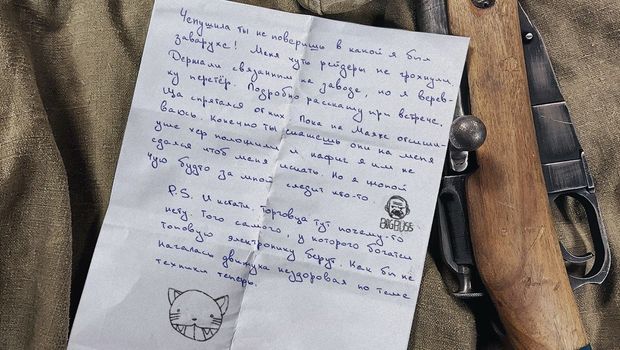 Чепушила ты не поверишь в какой я был
завардке! Меня чуть рейдеры не грохнули.
Держали связанним на заводе, но я верев-
ку перетёр. Подробно расскажу при встрече.
Ща спрятался от них. Пока на Маяке
ваюсь. Конечно ты они на меня
уже хер положили и нафиг я им не
сдался чтоб меня искать. Но я жопой
чую будто за мной следит кто-то.
BIGBOSS
P.S. И кстати, торговца тут почему-то
нету. Того самого, у которого богатеи
топовую электронику берут. Как бы не
началась движуха нездоровая по теме
техники теперь.